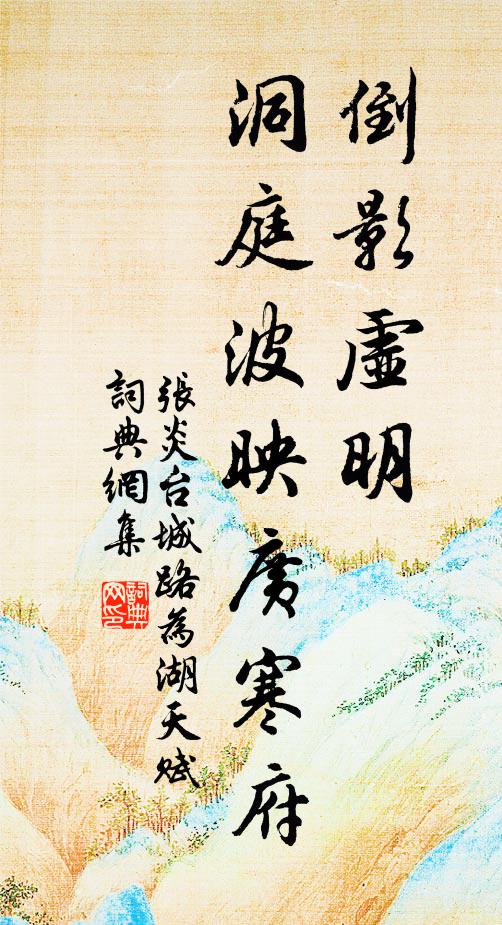 倒影虛明
洞庭波映廣寒府
張炎台城路為湖天賦
詞典網集
詞典
网印